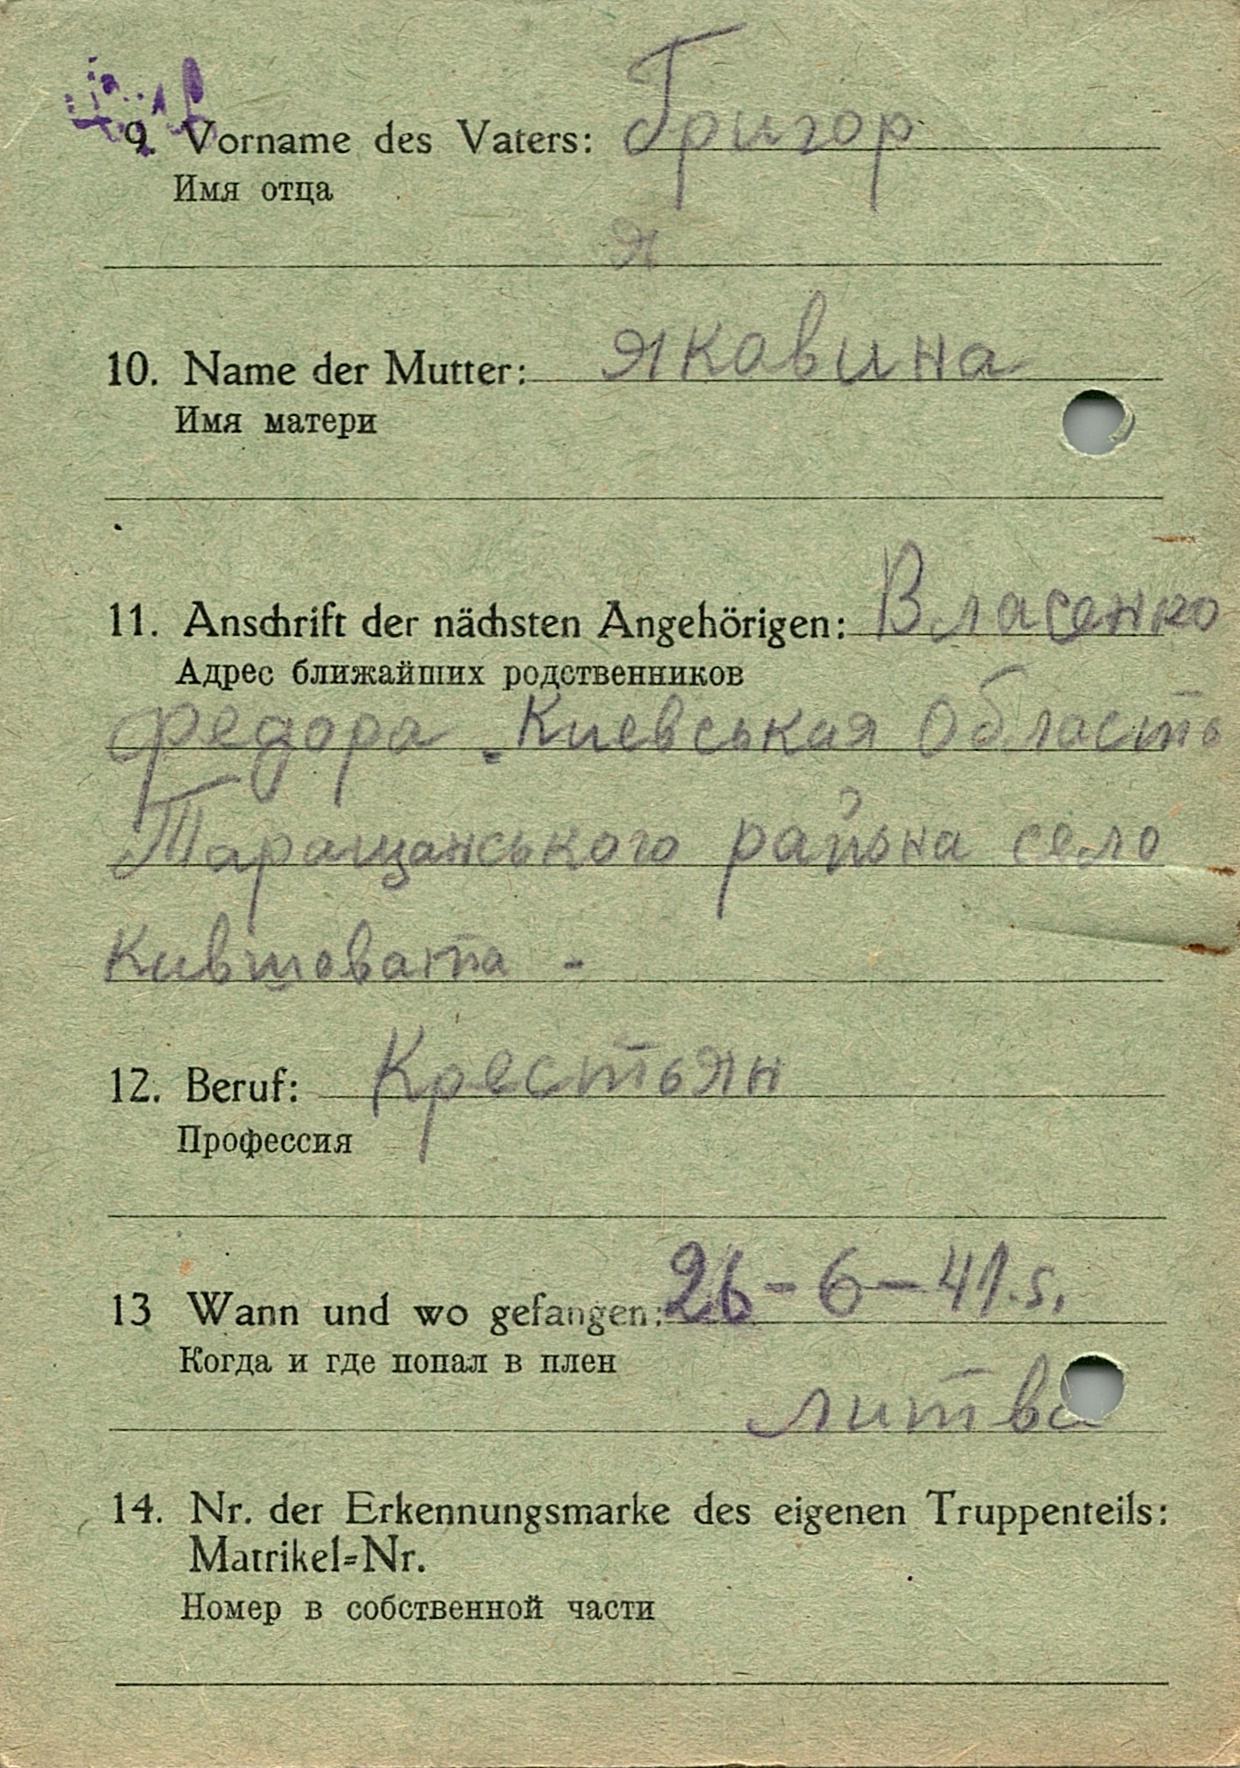 9. Vorname des Vaters: Григор
Имя отца
Я
10. Name der Mutter: Яковина
Имя матери
11. Anschrift der nächsten Angehörigen: Власенко
Адрес ближайших родственников
Федора. Киевськая Область
Таращанського района село
Кившовата -
12. Beruf: Крестьян
Профессия
13 Wann und wo gefangen: 26-6-41.s.
Когда и где попал в плен
литва
14. Nr. der Erkennungsmarke des eigenen Truppenteils:
Matrikel=Nr.
Номер в собственной части